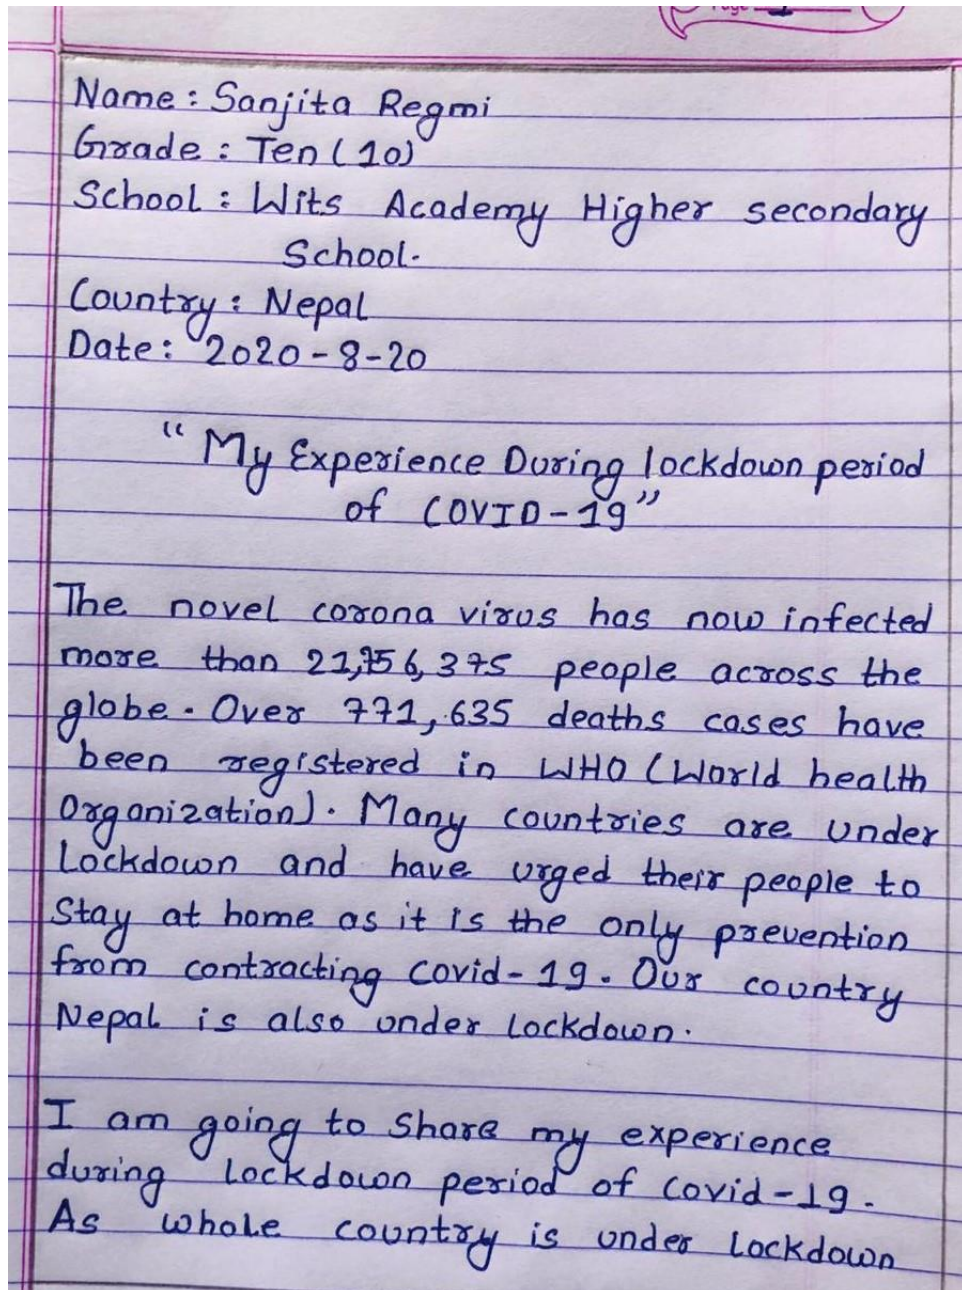 Page
Name : Sanjita Regmi
Grade : Ten (10)
School : Wits Academy Higher secondary
School.
Country : Nepal
Date : 2020-8-20
"My Experience During lockdown period
of COVID-19"
The novel corona virus has now infected
more than 21,756,375 people across the
globe. Over 771,635 deaths cases have
been registered in WHO (World health
Organization). Many countries are under
Lockdown and have urged their people to
Stay at home as it is the only prevention
from contracting Covid-19. Our country
Nepal is also under lockdown.
I am going to Share my experience
during Lockdown period of Covid-19.
As whole country is under Lockdown